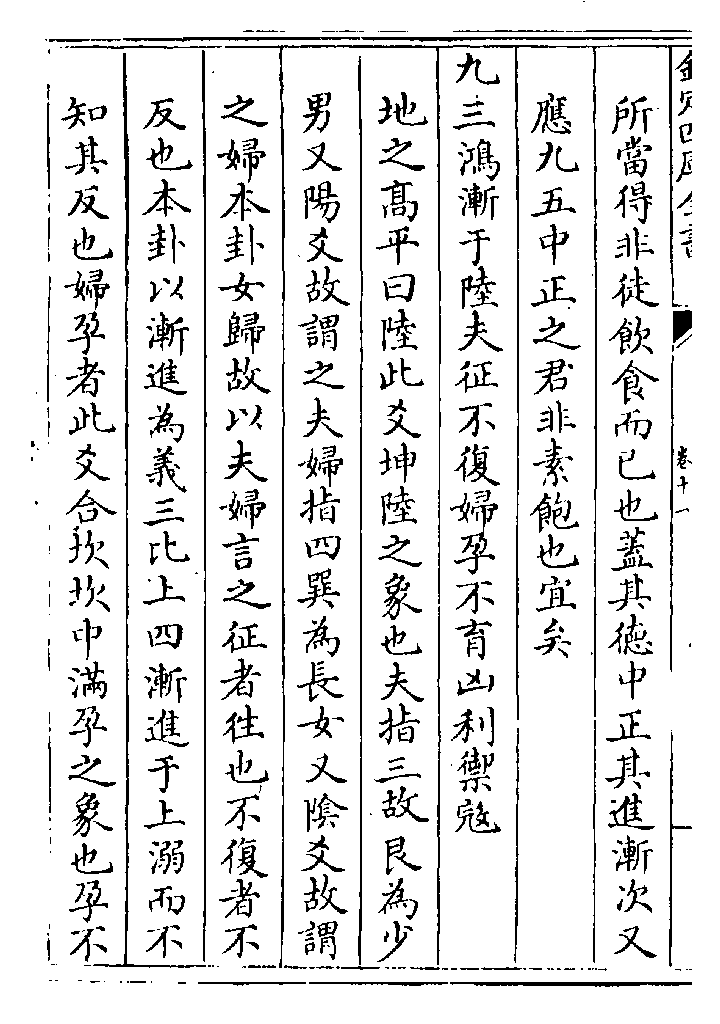 欽定四庫全書
卷十一
所當得非徒飲食而已也蓋其德中正其進漸次又
應九五中正之君非素飽也宜矣
九三鴻漸于陸夫征不復婦孕不育凶利禦寇
地之髙平曰陸此爻坤陸之象也夫指三故艮為少
男又陽爻故謂之夫婦指四巽為長女又陰爻故謂
之婦本卦女歸故以夫婦言之征者往也不復者不
反也本卦以漸進為義三比上四漸進于上溺而不
知其反也婦孕者此爻合坎坎中滿孕之象也孕不